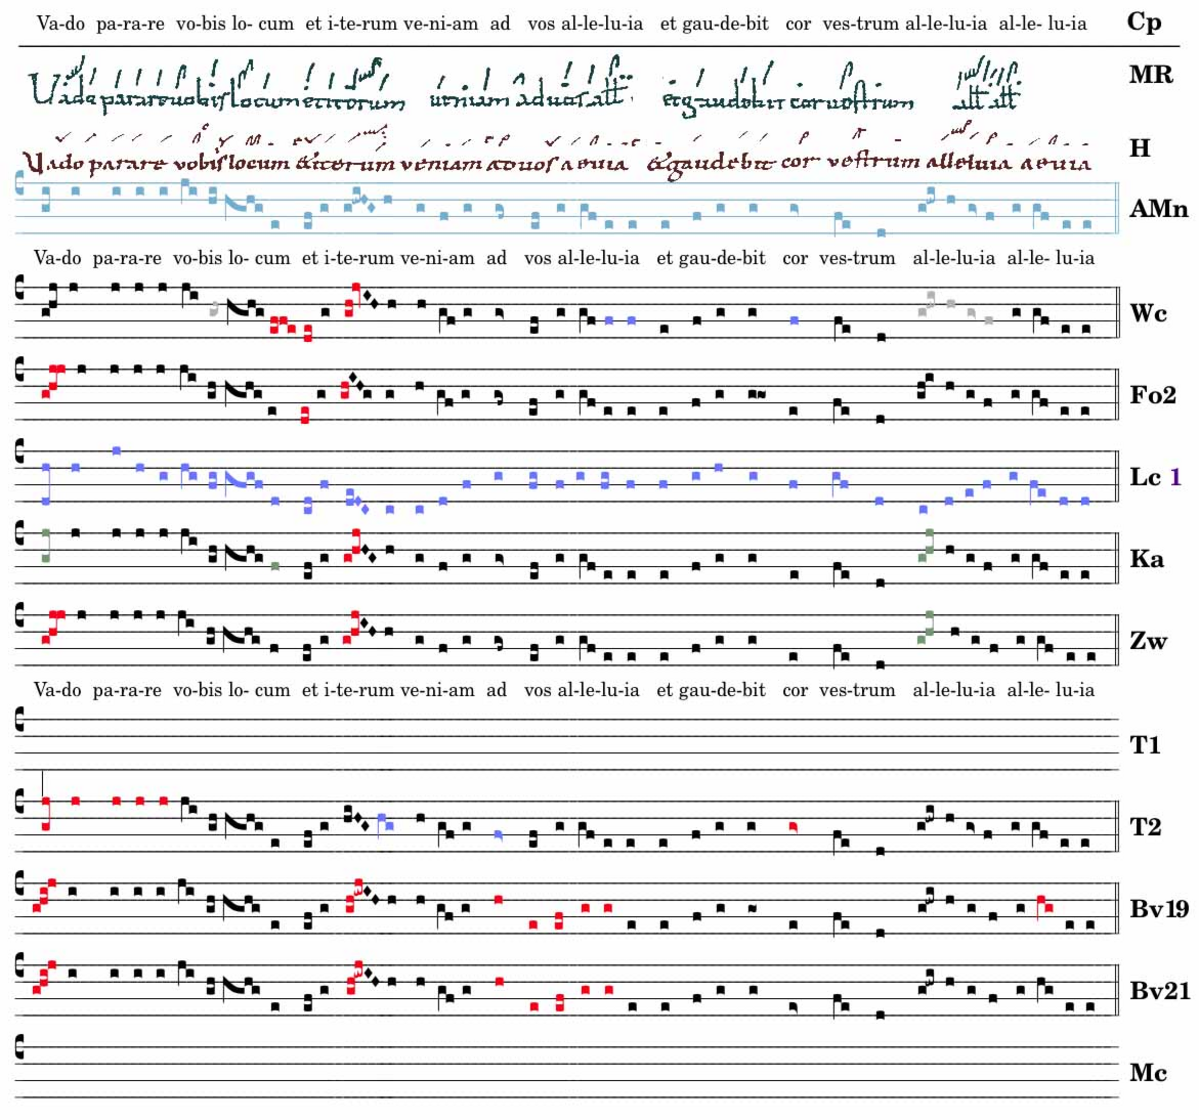 Va-do pa-ra-re vo-bis lo- cum et i-te-rum ve-ni-am ad vos al-le-lu-ia et gau-de-bit cor ves-trum al-le-lu-ia al-le- lu-ia Cp
MR
Vado parare vobis locum et iterum veniam ad vos aevia et gaudebit cor vestrum alleluia aevia H
AMn
Va-do pa-ra-re vo-bis lo- cum et i-te-rum ve-ni-am ad vos al-le-lu-ia et gau-de-bit cor ves-trum al-le-lu-ia al-le- lu-ia
Wc
Fo2
Lc 1
Ka
Zw
Va-do pa-ra-re vo-bis lo- cum et i-te-rum ve-ni-am ad vos al-le-lu-ia et gau-de-bit cor ves-trum al-le-lu-ia al-le- lu-ia
T1
T2
Bv19
Bv21
Mc